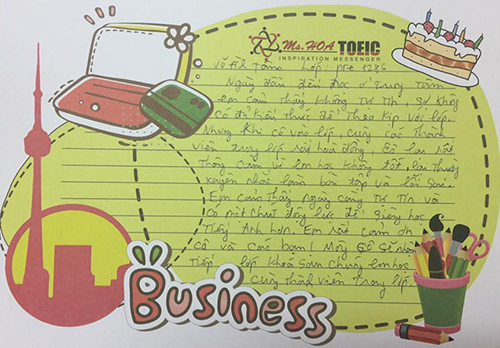 Ms. HOA TOEIC
INSPIRATION MESSENGER
Võ Tâm Lớp pre 1286
Ngày đầu đến học ở Trung Tâm
em cảm thấy không Tự Tin, sợ không
có đủ kiến thức để Theo kịp với lớp.
Nhưng khi cô vào lớp, cùng các Thành
Viên trong lớp rất hoà đồng, cô lại rất
Thông cảm vì em học không tốt, lại thường
xuyên nhắc làm bài tập và lần sau.
Em cảm thấy ngày càng Tự Tin và
có một chút động lực để siêng học
Tiếng Anh hơn. Em rất cảm ơn
cô và các bạn! Mong cô sẽ nhận
Tiếp lớp khoá sau chúng em học
cùng thành viên trong lớp.
BUSINESS